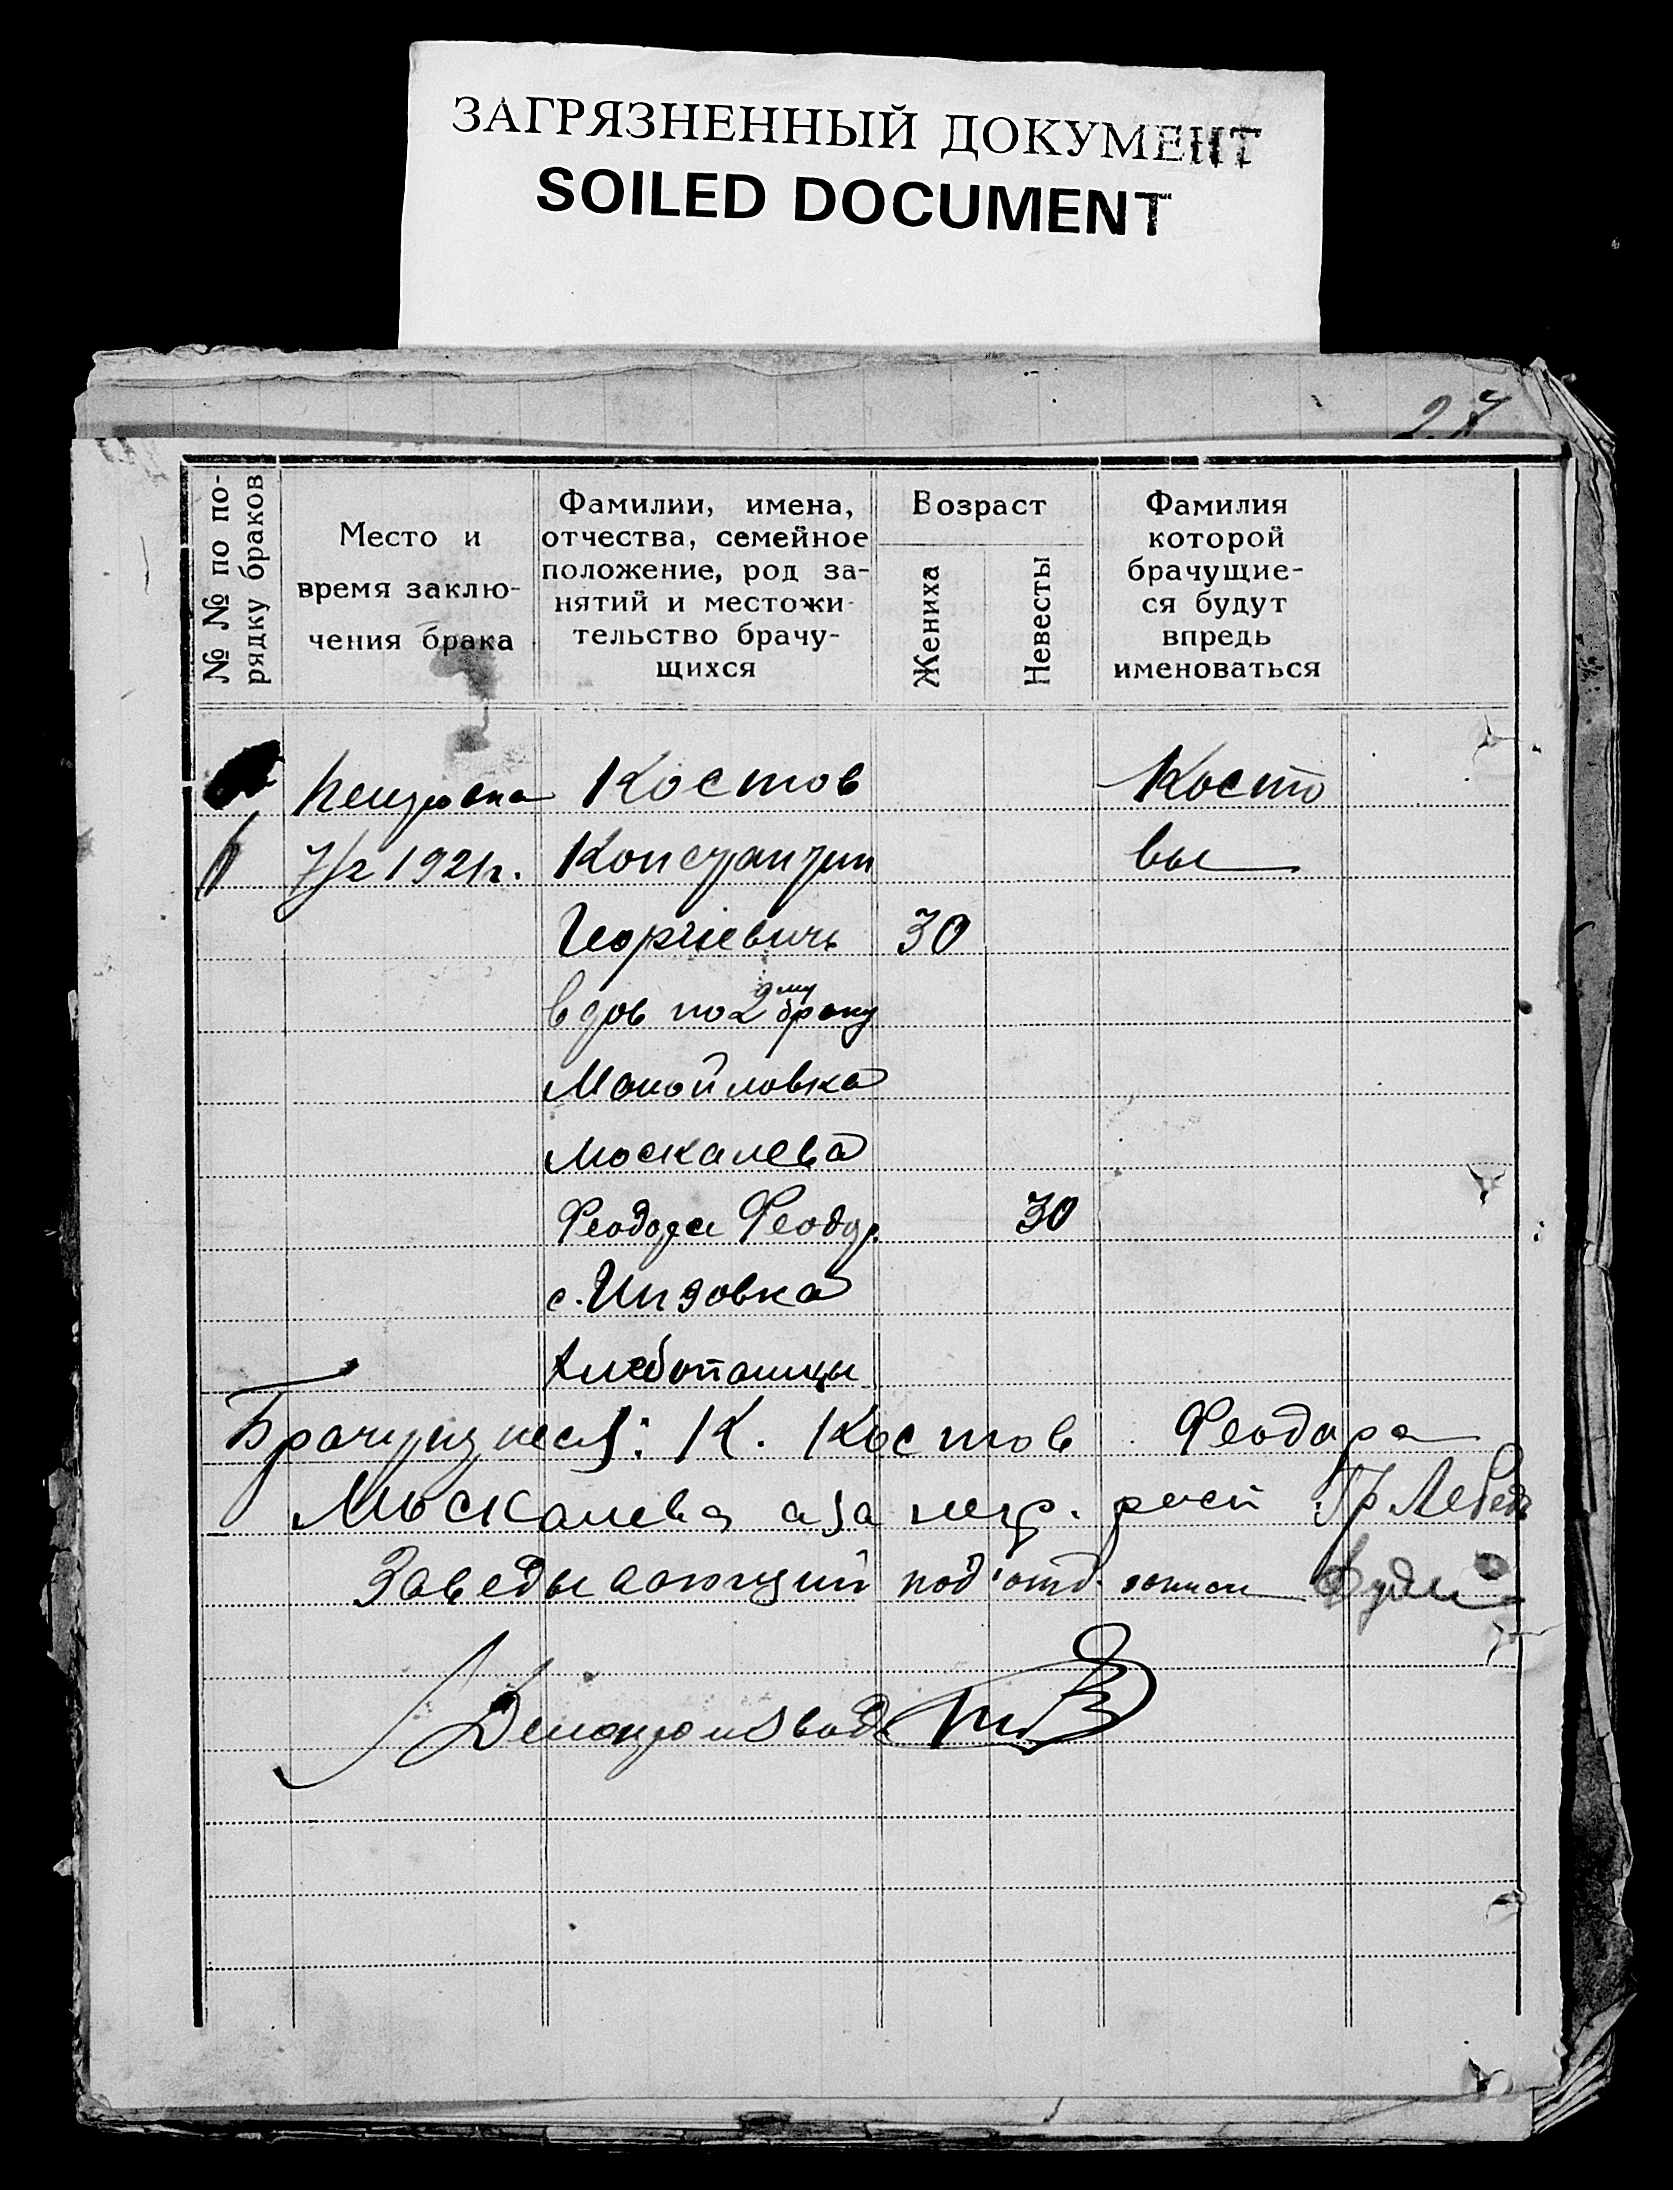 ЗАГРЯЗНЕННЫЙ ДОКУМЕНТ
SOILED DOCUMENT
27
№ № по по-
рядку браков
Место и
время заклю-
чения брака
Фамилии, имена,
отчества, семейное
положение, род за-
нятий и местожи-
тельство брачу-
щихся
Возраст
Жениха
Невесты
Фамилия
которой
брачущие-
ся будут
впредь
именоваться
Костов Косто
7/2 1921 г. Константин вы
Георгіевичъ 30
вдов по 2 ому браку
Манойловка
Москалева
Феодора Феодор. 30
с.
Хлебопашцы
Брачущиеся: К. Костов Феодора
Москалева а за негр. росп Гр Лебедь
Заведывающий под'отд. записи
Делопроизвод